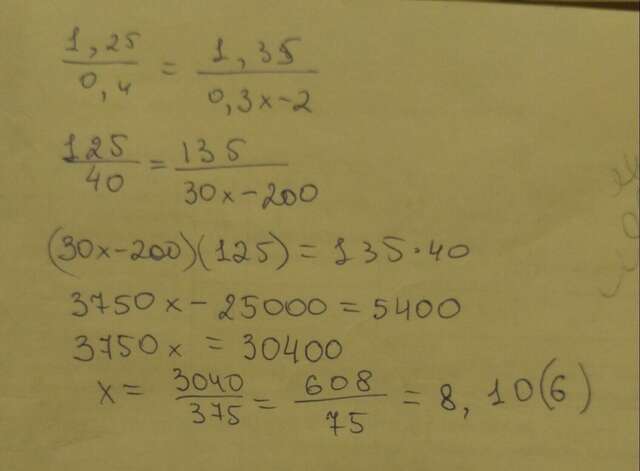 1,25/0,4 = 1,35/0,3x-2
125/40 = 135/30x-200
(30x-200)(125) = 135·40
3750x - 25000 = 5400
3750x = 30400
x = 3040/375 = 608/75 = 8,10(6)